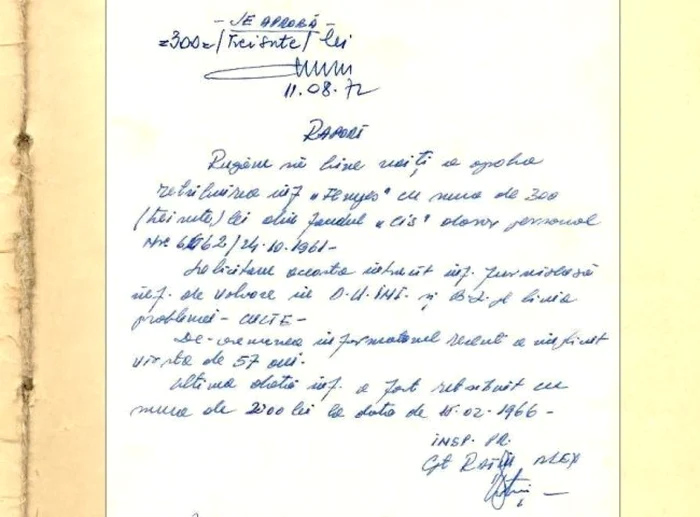 - SE APROBĂ -
=300=/Treisute/ lei
11.08.72
RAPORT
Rugăm să bine voiți a aproba
retribuirea inf „ cu suma de 300
/treisute/ lei din fondul „CIS" dosar personal
Nr. /24.10.1961-
Solicităm aceasta întrucît inf. furnizează
inf. de valoare în și pe linia
problemei - CULTE -
De-asemenea informatorul recent a împlinit
vîrsta de 57 ani.
Ultima dată inf. a fost retribuit cu
suma de lei la data de 15.02.1966-
INSP. PR.
ALEX